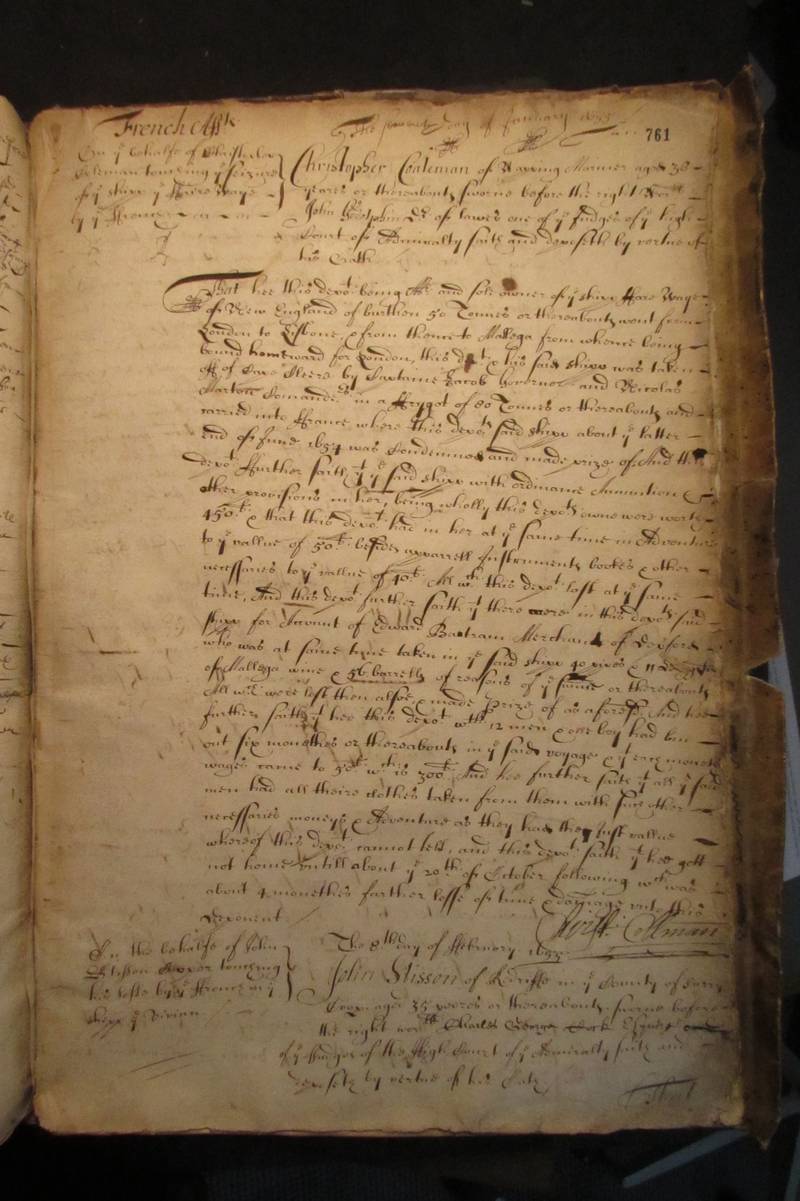 French Act
The seaventh day of January 1655
761
On ye behalfe of Christopher
Coleman touching ye seizure
of ye shipp ye Hare Wage
by ye French
Christopher Coaleman of Wapping Mariner aged 38
yeares or thereabouts sworne before the right Worll
John Godolphin Dr of lawes one of ye Judges of ye high
Court of Admiralty saith and deposeth by vertue of
his Oath
That hee this depot being Mr and sole owner of ye shipp Hare Wage
of New England of burthen 50 Tonnes or thereabouts went from
London to Lisbone, & from thence to Mallega from whence being
bound homeward for London, this dept & his said shipp was taken
off of by Captaine Jacob Governor and Nicolas
Marton Comanders in a ffrygot of 80 Tonnes or thereabouts and
carried into ffrance where this depots said shipp about ye latter
end of June 1654 was Condemned and made prize of. And this
depot ffurther saith yt ye said shipp with ordinance Amunition &
other provisions in her, being wholly this depots owne were worth
450li & that this depot had in her at ye same time in Adventure
to ye vallue of 50li besides apparrell Instruments bookes & other
necessaries to ye vallue of 40li All wch this depot lost at ye same
time, And this depot further saith yt there were in this depots said
shipp for Account of Edward Bartram Merchant of London
who was at same time taken in ye said shipp 40 pipes & 11
of Mallega wine & 56 barrells of reasons of ye sunne or thereabouts
All wch were lost then alsoe & made prize of as aforesd. And hee
further saith yt hee this depot wth 12 men & one boy had bin
out six moneths or thereabouts in ye said voyage & yt each moneth
wages came to 50li wch is 300li And hee further saith yt all ye said
men had all theire clothes taken from them with such other
necessaries moneys & Adventure as they had the Just vallue
whereof this depot cannot tell, and this depot saith yt hee gott
not home untill about ye 20th of October following wch was
about 4 moneths further losse of time & damage unto this
deponent
Christ Collman
In the behalfe of John
Stisson touching
his losse by ye French in ye
shipp ye Vivian
The 8th day of ffebruary 1655
John Stisson of Redriffe in ye County of Surry
aged 35 yeeres or thereabouts sworne before
the right worll Charles George Cock Esquire one
of ye Judges of the High Court of ye Admiralty saith and
deposeth by vertue of his Oath
That